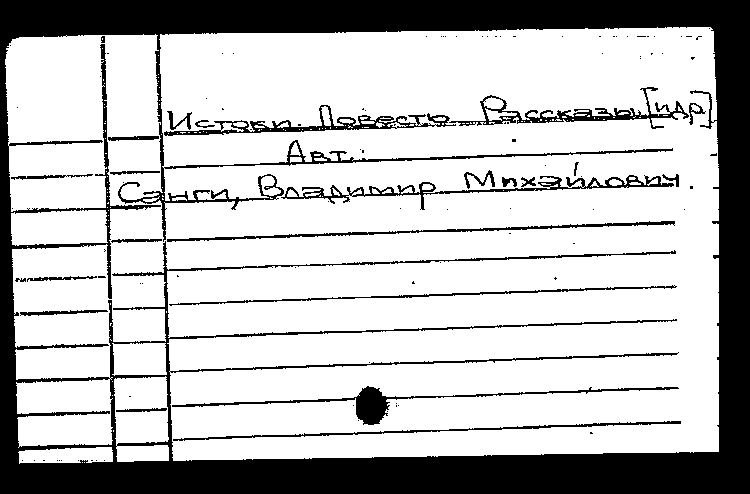 Истоки. Повесть. Рассказы. [и др]
Авт.:
Санги, Владимир Михайлович.